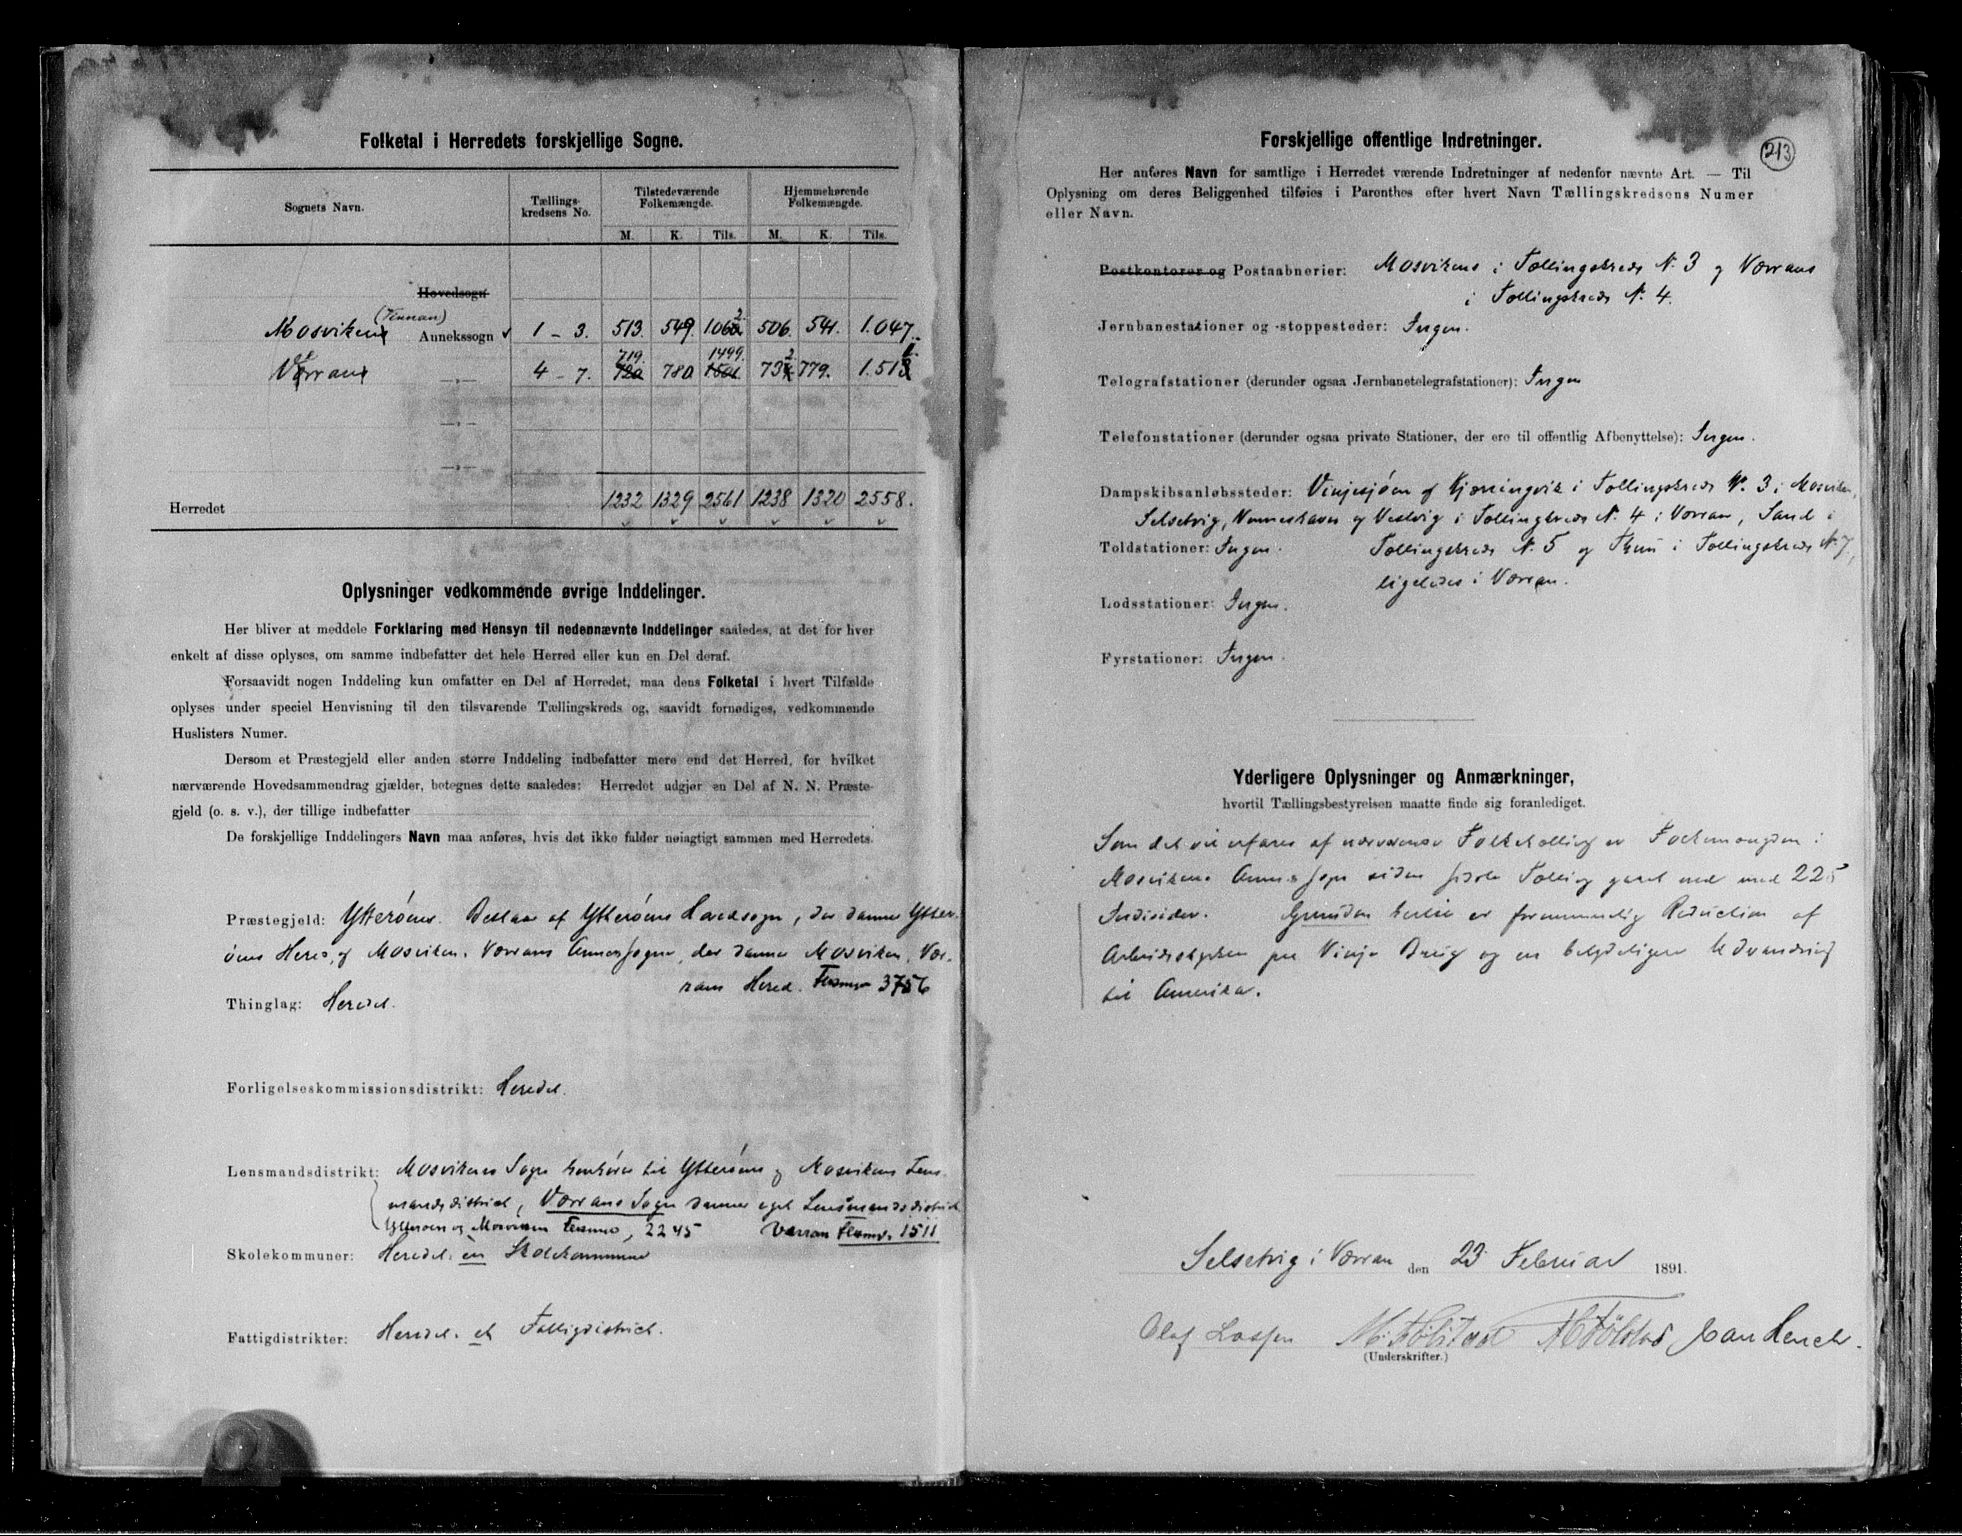 Folketal i Herredets forskjellige Sogne.
Sognets Navn. Tællings-kredsens No. Tilstedeværende Folkemængde. Hjemmehørende Folkemængde.
M. K. Tils. M. K. Tils.
Hovedsogn
(Vinnan)
Mosviken Annekssogn 1 - 3. 513. 549. 1062. 506. 541. 1.047.
Værran „ 4 - 7. 719. 780 1499. 732. 779. 1.511.
„
„
Herredet 1232 1329 2561 1238 1320 2558.
Oplysninger vedkommende øvrige Inddelinger.
Her bliver at meddele Forklaring med Hensyn til nedennævnte Inddelinger saaledes, at det for hver
enkelt af disse oplyses, om samme indbefatter det hele Herred eller kun en Del deraf.
Forsaavidt nogen Inddeling kun omfatter en Del af Herredet, maa dens Folketal i hvert Tilfælde
oplyses under speciel Henvisning til den tilsvarende Tællingskreds og, saavidt fornødiges, vedkommende
Huslisters Numer.
Dersom et Præstegjeld eller anden større Inddeling indbefatter mere end det Herred, for hvilket
nærværende Hovedsammendrag gjælder, betegnes dette saaledes: Herredet udgjør en Del af N. N. Præste-
gjeld (o. s. v.), der tillige indbefatter
De forskjellige Inddelingers Navn maa anføres, hvis det ikke falder nøiagtigt sammen med Herredets.
Præstegjeld: Ytterøens. Bestaar af Ytterøens Hovedsogn, der danner Ytter-
øens Hered, og Mosviken, Værrans Annexsogne, der danner Mosviken, Vær-
rans Hered. 3756
Thinglag: Heredet.
Forligelseskommissionsdistrikt: Heredet.
Lensmandsdistrikt: Mosvikens Sogn henhører til Ytterøens og Mosvikens Lens-
mandsdistrict, Værrans Sogn danner eget Lensmandsdistrict
Ytterøen og Mosviken 2245 Værran 1511
Skolekommuner: Heredet én Skolekommune
Fattigdistrikter: Heredet et Fattigdistrict.
213
Forskjellige offentlige Indretninger.
Her anføres Navn for samtlige i Herredet værende Indretninger af nedenfor nævnte Art. — Til
Oplysning om deres Beliggenhed tilføies i Parenthes efter hvert Navn Tællingskredsens Numer
eller Navn.
Postkontorer og Postaabnerier: Mosvikens i Tællingskreds N. 3 og Værrans
i Tællingskreds N. 4.
Jernbanestationer og -stoppesteder: Ingen.
Telegrafstationer (derunder ogsaa Jernbanetelegrafstationer): Ingen
Telefonstationer (derunder ogsaa private Stationer, der ere til offentlig Afbenyttelse): Ingen.
Dampskibsanløbssteder: Vinjesjøen og Kjærringvik i Tællingskreds N. 3 i Mosviken,
Selsetvig, Venneshavn og Vestvig i Tællingskreds N. 4 i Værran, Sand i
Toldstationer: Ingen. Tællingskreds N. 5 og i Tællingskreds N. 7,
ligeledes i Værran.
Lodsstationer: Ingen.
Fyrstationer: Ingen.
Yderligere Oplysninger og Anmærkninger,
hvortil Tællingsbestyrelsen maatte finde sig foranlediget.
Som det vil erfares af nærværende Folketælling er Folkemængden i
Mosvikens Annexsogn siden sidste Tælling gaaet ned med 225
Individer. Grunden hertil er fornemmelig Reduction af
Arbeidsstyrken paa Vinje Brug og en betydeligere Udvandring
til Amerika.
Selsetvig i Værran den 23 Februar 1891.
Olaf
(Underskrifter.)